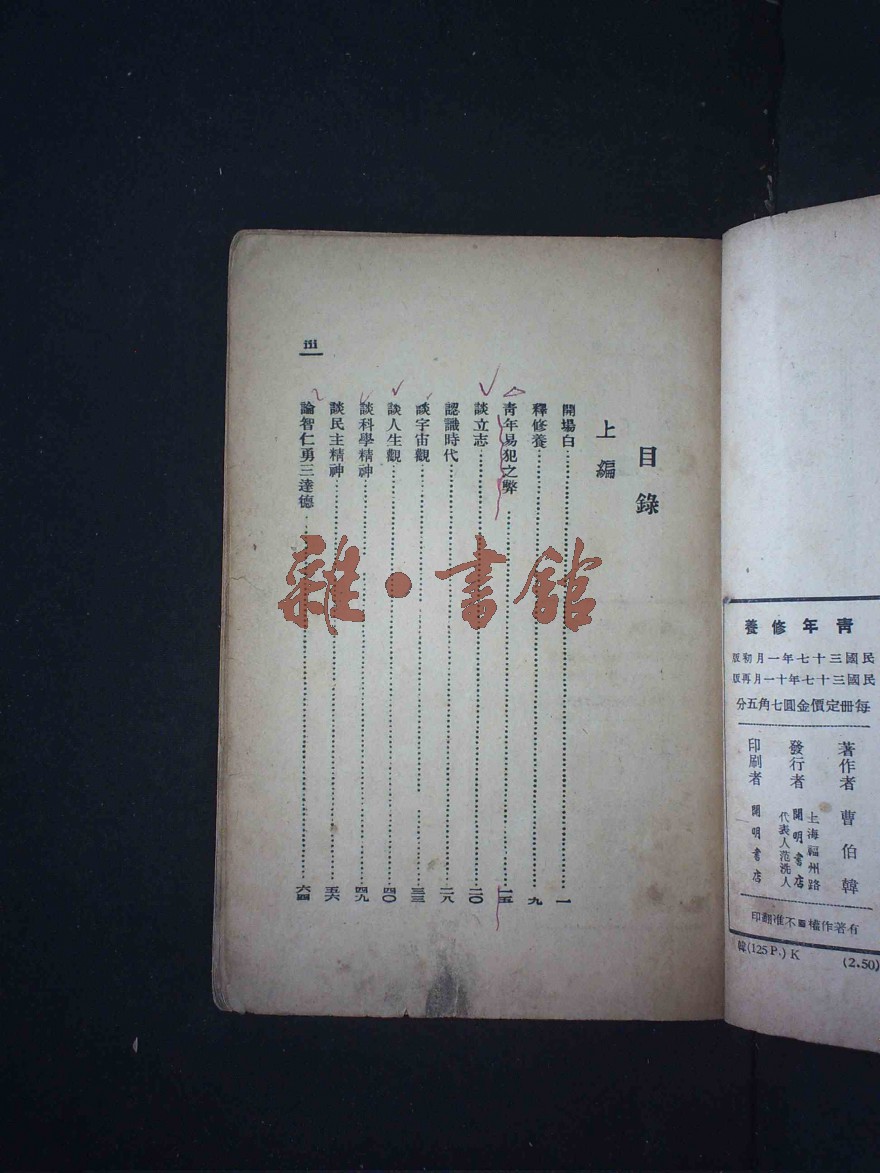 青年修養
民國三十七年一月初版
民國三十七年十一月再版
每冊定價金圓七角五分
著作者 曹伯韓
發行者 上海福州路 開明書店 代表人范洗人
印刷者 開明書店
有著作權不准翻印
(2.50)
韓(125 P.) K
目錄
上編
開場白 一
釋修養 九
青年易犯之弊 一五
談立志 二〇
認識時代 二八
談宇宙觀 三三
談人生觀 四〇
談科學精神 四九
談民主精神 五六
論智仁勇三達德 六四
iii
雜·書館